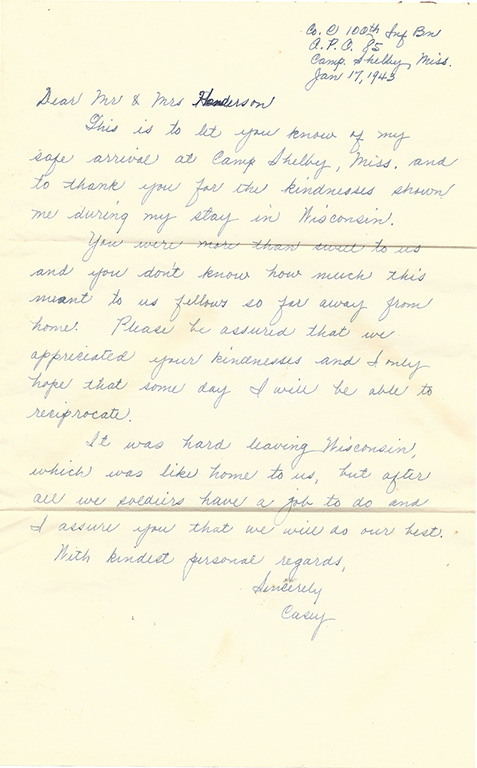 Co. C 100th Inf Bn
A.P.O. 85
Camp. Shelby, Miss.
Jan 17, 1943
Dear Mr & Mrs Henderson
This is to let you know of my
safe arrival at Camp Shelby, Miss. and
to thank you for the kindnesses shown
me during my stay in Wisconsin.
You were more than swell to us
and you don't know how much this
meant to us fellows so far away from
home. Please be assured that we
appreciated your kindnesses and I only
hope that some day I will be able to
reciprocate.
It was hard leaving Wisconsin,
which was like home to us, but after
all we soldiers have a job to do and
I assure you that we will do our best.
With kindest personal regards,
Sincerely
Casey